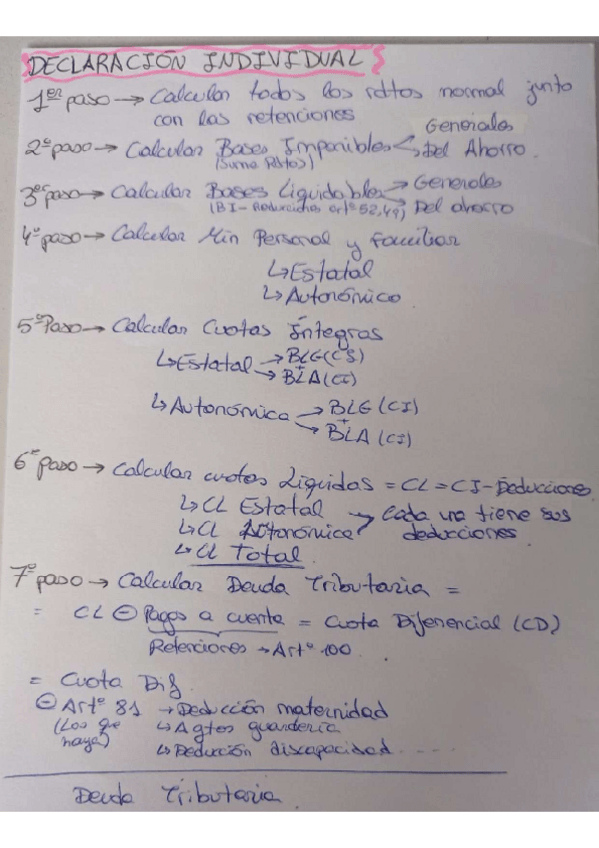 DECLARACIÓN INDIVIDUAL
1er paso → Calcular todos los rdtos normal junto
con las retenciones
2º paso → Calcular Bases Imponibles < Generales
(Suma Rdtos) Del Ahorro
3º paso → Calcular Bases Liquidables → Generales
(BI - Reducciones artº 52,49) Del ahorro
4º paso → Calcular Min Personal y familiar
↳ Estatal
↳ Autonómico
5º Paso → Calcular Cuotas Íntegras
↳ Estatal → BLG (CI)
+
→ BLA (CI)
↳ Autonómica → BLG (CI)
+
→ BLA (CI)
6º paso → Calcular cuotas Líquidas = CL = CI - Deducciones
↳ CL Estatal → Cada una tiene sus
↳ CL Autonómica deducciones
↳ CL Total
7º paso → Calcular Deuda Tributaria =
= CL ⊖ Pagos a cuenta = Cuota Diferencial (CD)
Retenciones → Artº 100
= Cuota Dif
⊖ Artº 81 → Deducción maternidad
(Los que haya) ↳ Agtos guardería
↳ Deducción discapacidad ....
Deuda Tributaria